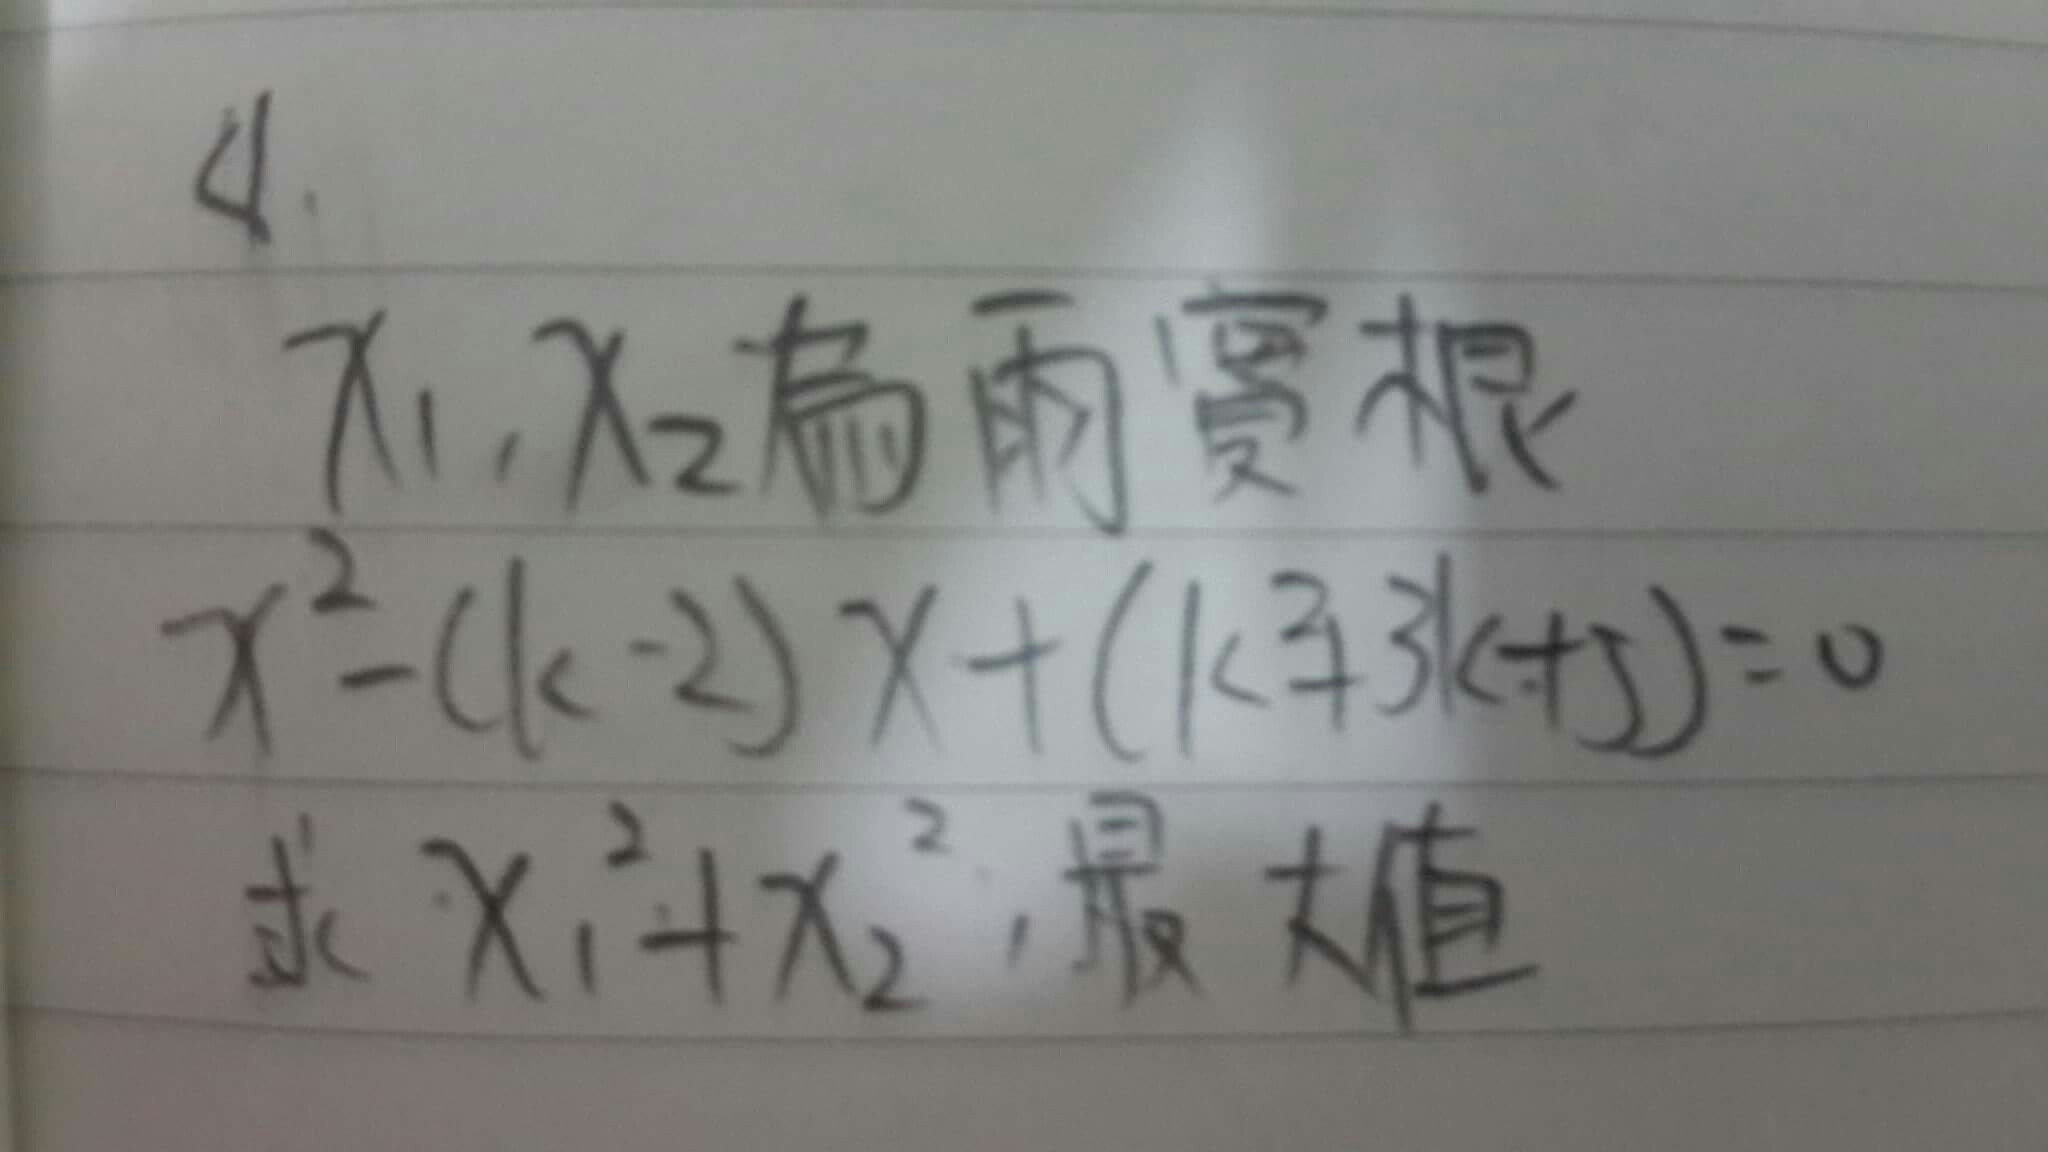 4.
x₁, x₂為兩實根
x²-(k-2)x+(k²+3k+5)=0
求 x₁²+x₂², 最大值